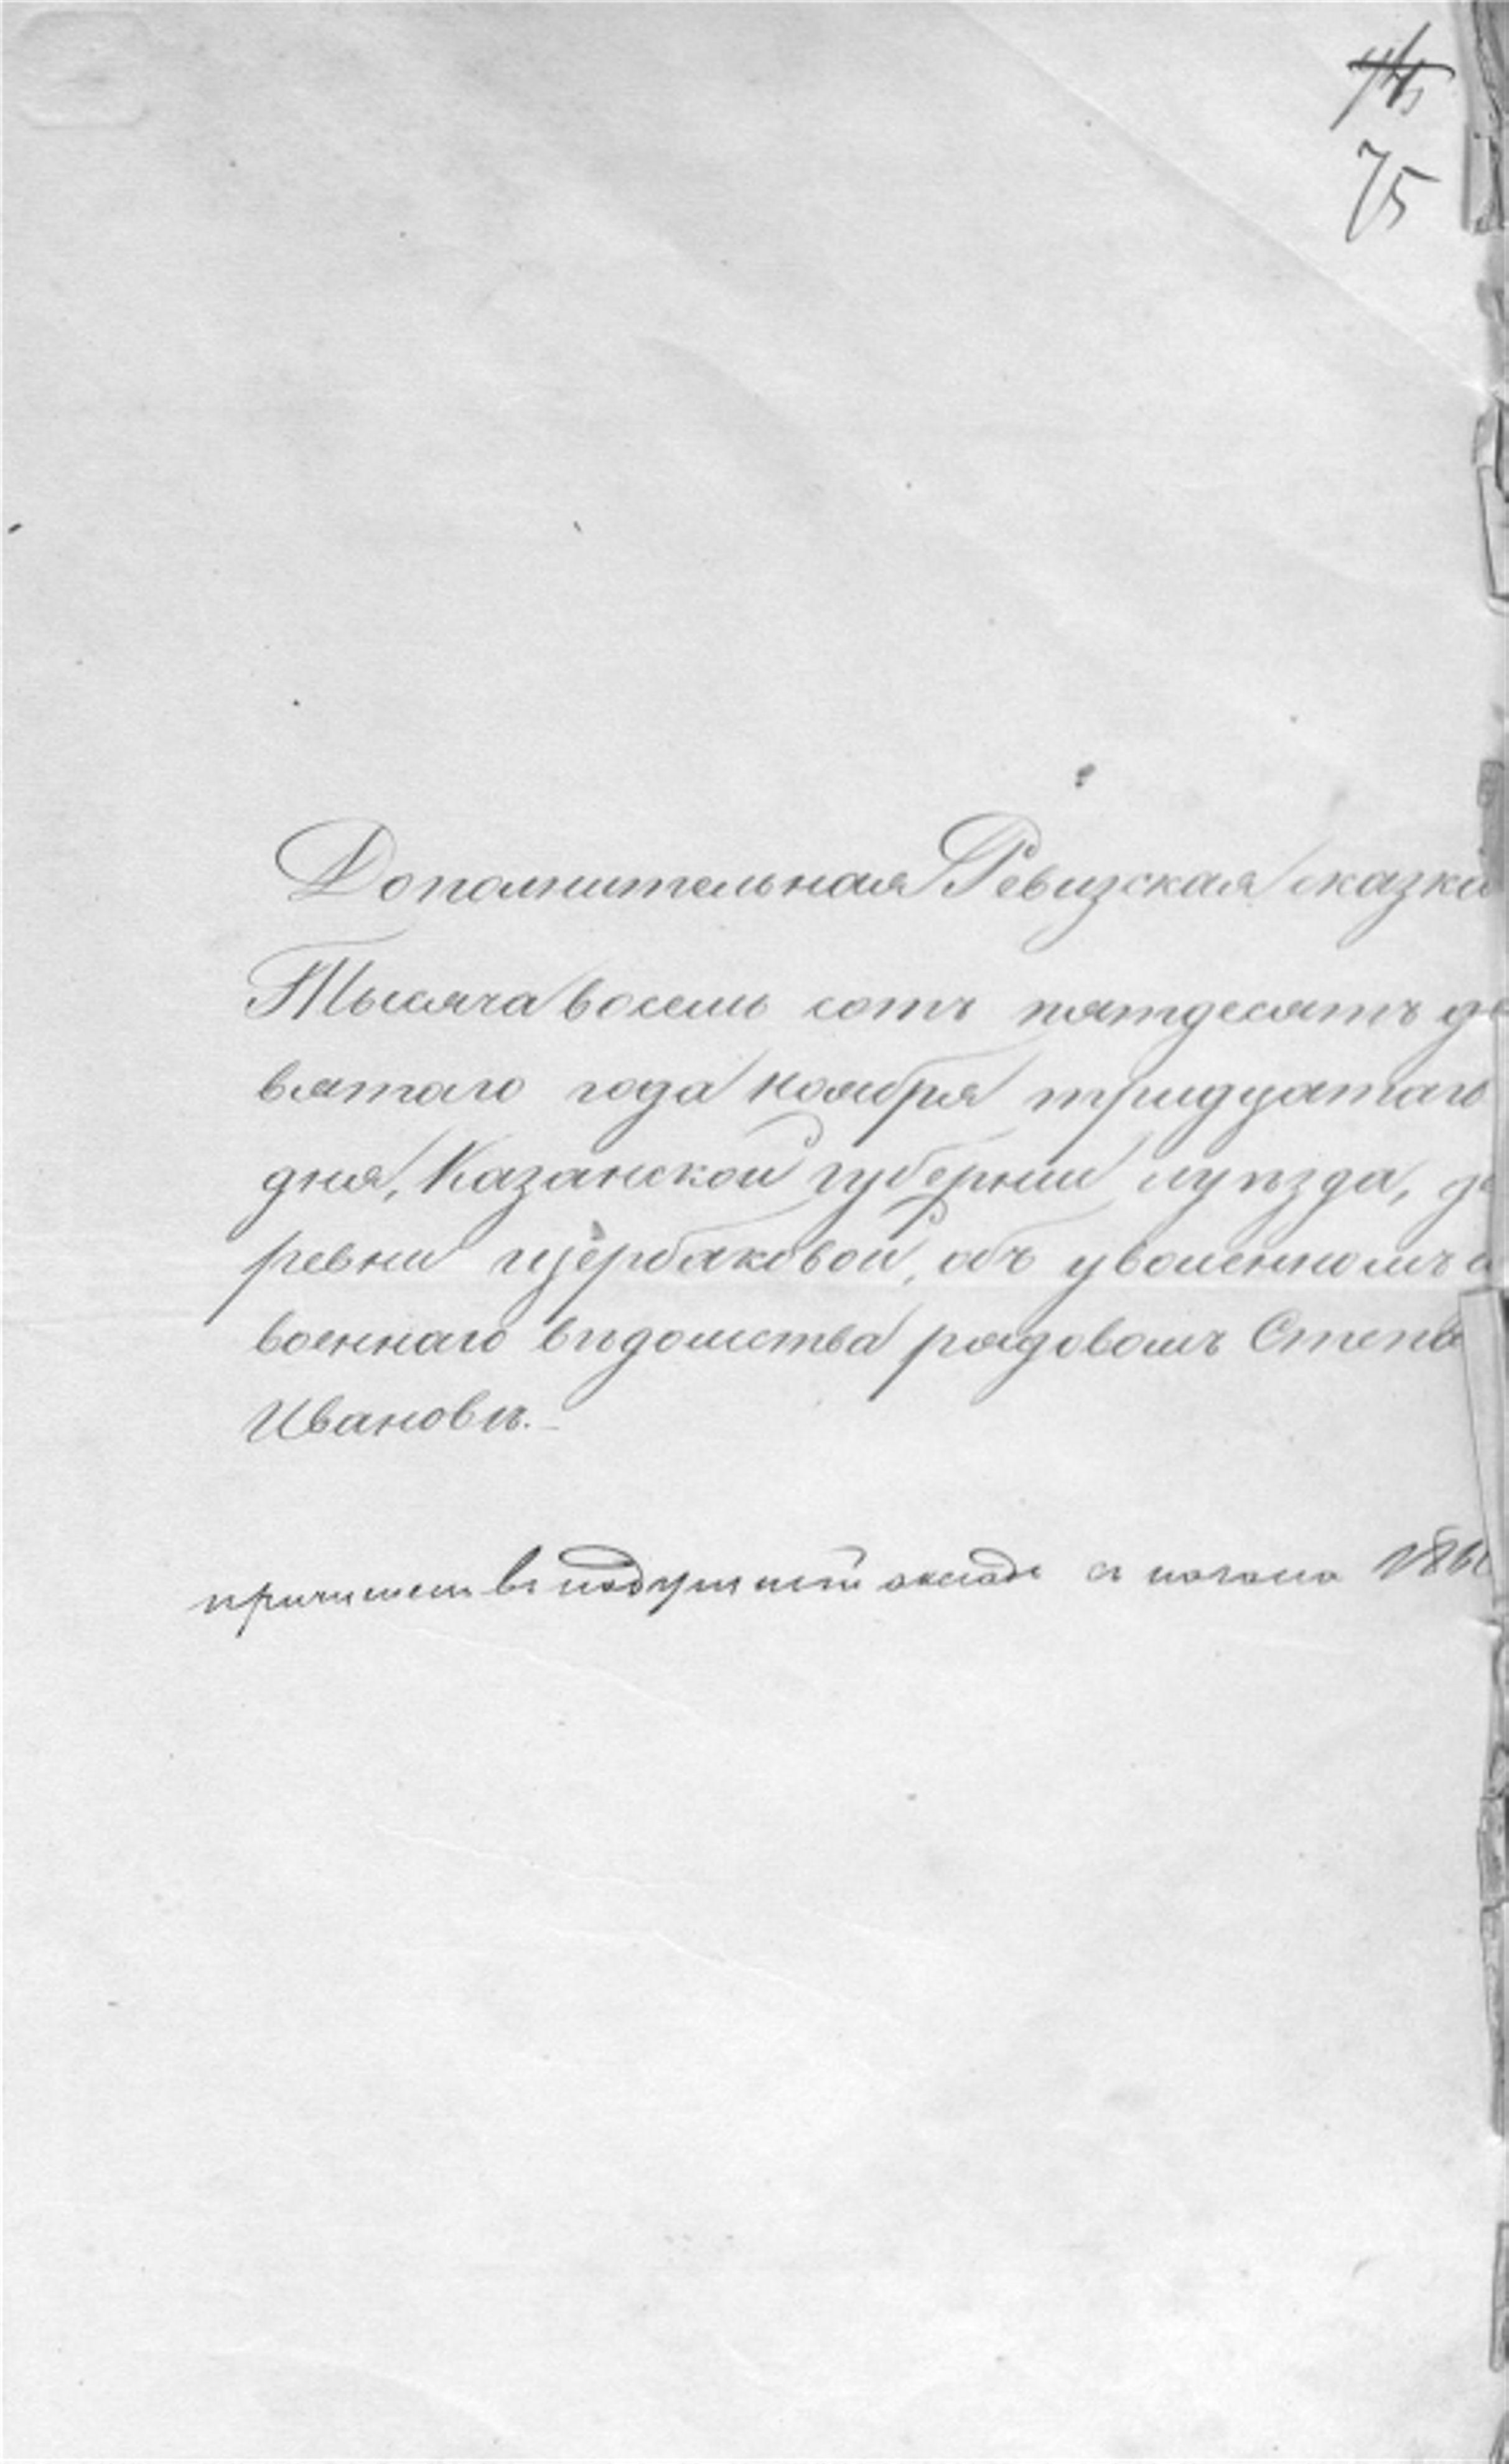 75
Дополнительная Ревизская сказка
Тысяча восемь сотъ пятдесятъ де
вятаго года ноября тридцатаго
дня, Казанской губернии и уѣзда, де
ревни щербаковой, объ уволенномъ
военнаго вѣдомства рядовомъ Степа
Ивановѣ.
причислен въ подушный окладъ съ начала